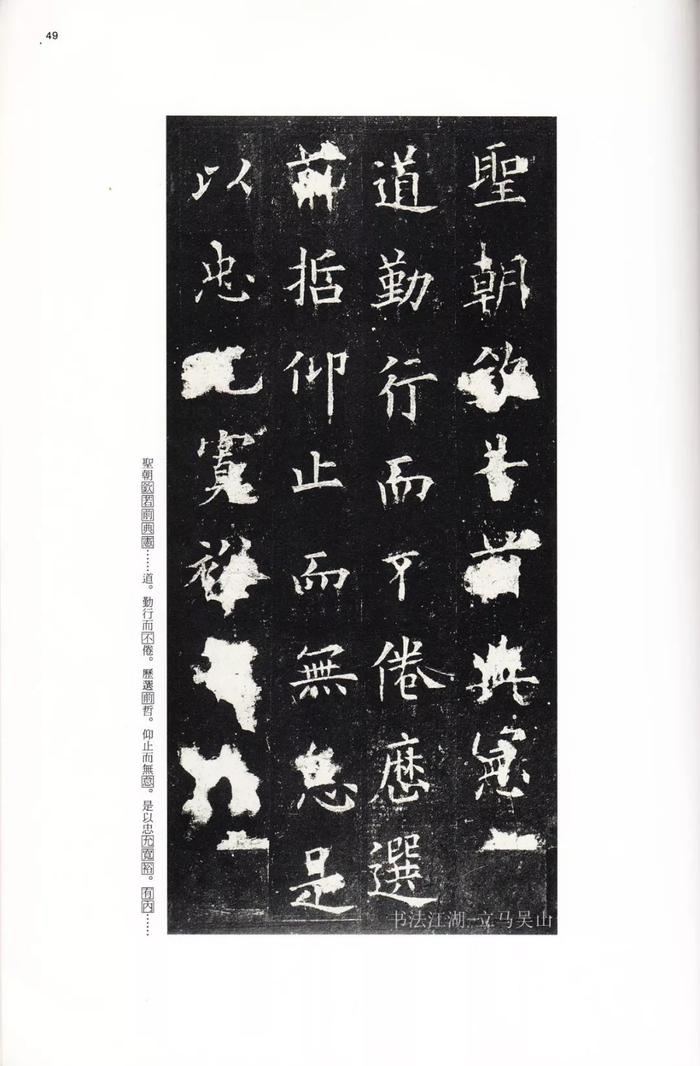 49
聖朝欽若前典憲
道勤行而不倦歷選
前哲仰止而無怠是
以忠允寬裕
书法江湖 立马吴山
聖朝欽若前典憲……道。勤行而不倦。歷選前哲。仰止而無怠。是以忠允寬裕。有內……